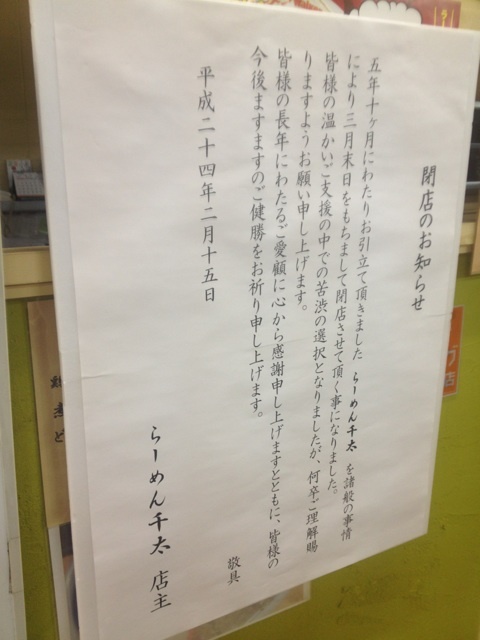 閉店のお知らせ
五年十ヶ月にわたりお引立て頂きました らーめん千太 を諸般の事情
により三月末日をもちまして閉店させて頂く事になりました。
皆様の温かいご支援の中での苦渋の選択となりましたが、何卒ご理解賜
りますようお願い申し上げます。
皆様の長年にわたるご愛顧に心から感謝申し上げますとともに、皆様の
今後ますますのご健勝をお祈り申し上げます。
敬具
平成二十四年二月十五日
らーめん千太 店主